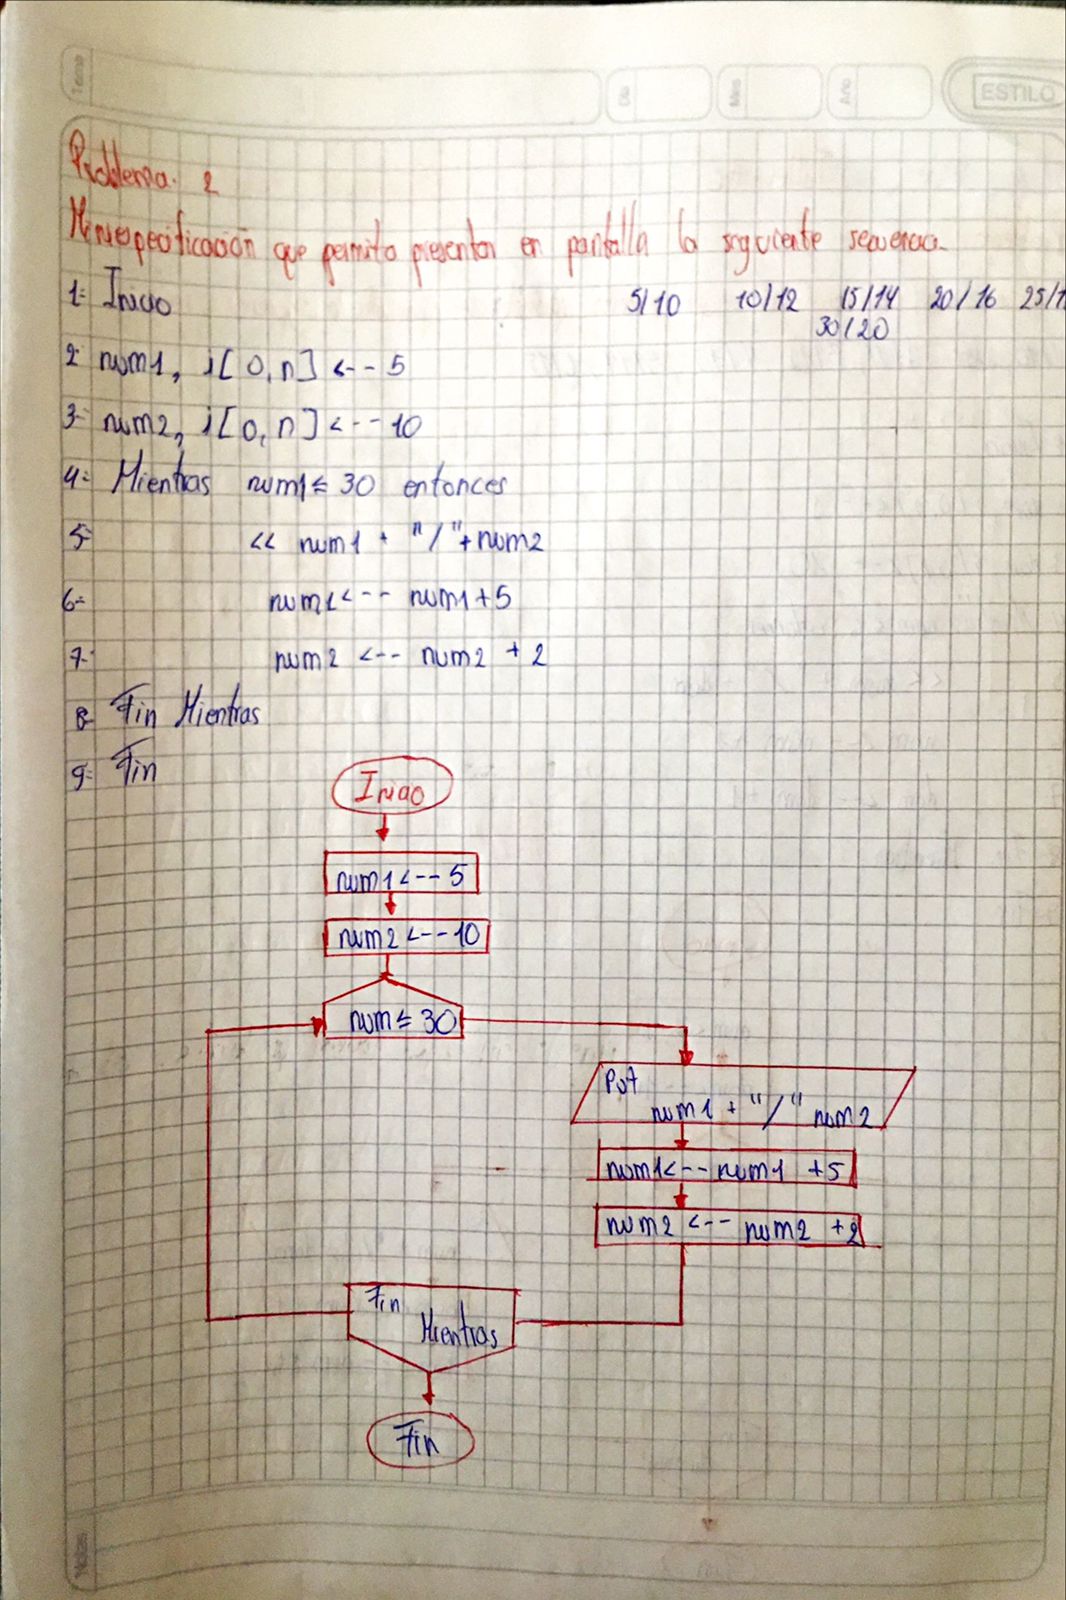 Tema
Día
Mes
Año
ESTILO
Problema. 2
Miniespecificación que permita presentar en pantalla la siguiente secuencia.
1- Inicio 5/10 10/12 15/14 20/16 25/1
30/20
2- num1, i[0,n] <-- 5
3- num2, i[0,n] <-- 10
4- Mientras num1≤ 30 entonces
5- << num1 + "/"+num2
6- num1<-- num1+5
7- num2 <-- num2 + 2
8- Fin Mientras
9- Fin
Inicio
num1<-- 5
num2 <-- 10
num ≤ 30
Put
num1 + "/" num2
num1<-- num1 +5
num2 <-- num2 +2
Fin
Mientras
Fin
Notas